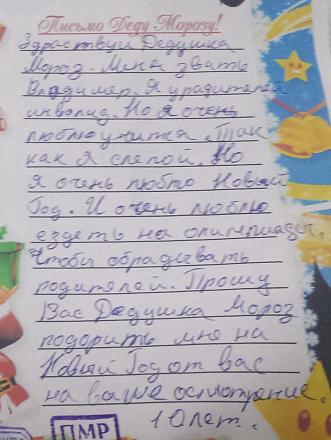 Письмо Деду Морозу!
Здраствуй Дедушка
Мороз. Меня звать
Владимер. Я у радителей
инвалид. Но я очень
люблю учится. Так
как я слепой. Но
я очень люблю Новый
Год. И очень люблю
ездеть на олимпиады.
Чтобы обрадывать
родителей. Прошу
Вас Дедушка Мороз
подорить мне на
Новый Год от вас
на ваше осмотрение.
10 лет.
ПМР